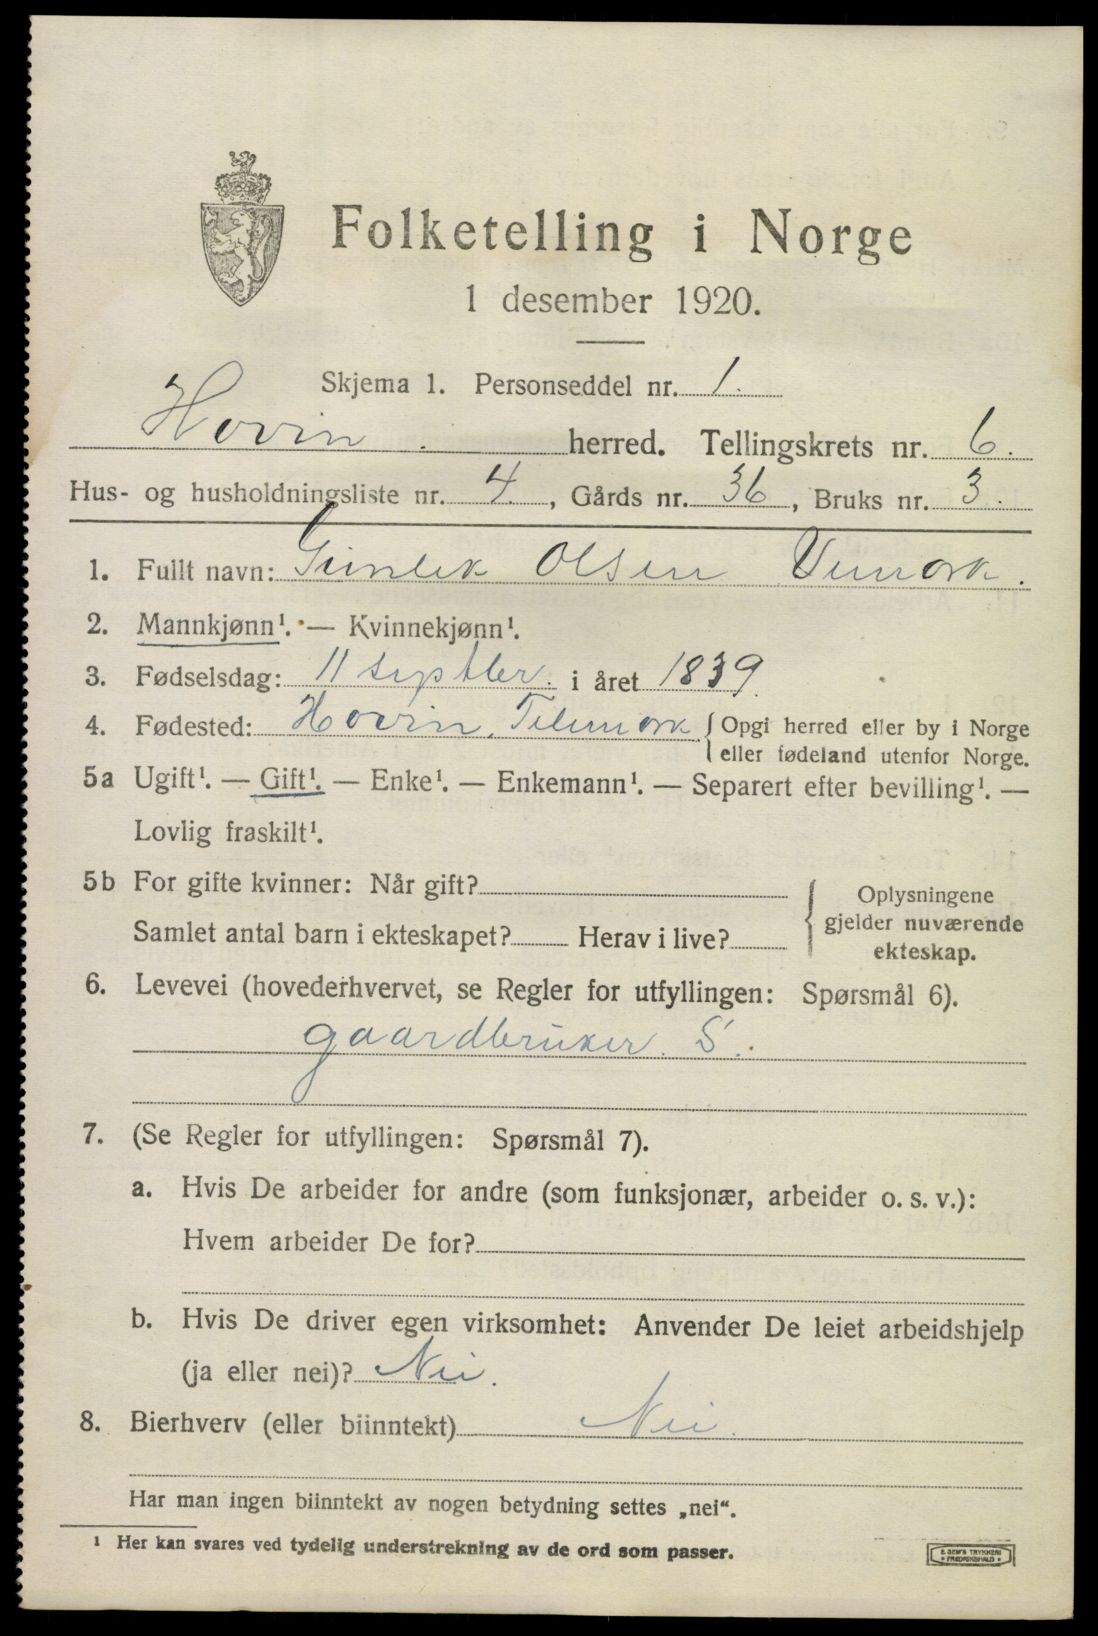 Folketelling i Norge
1 desember 1920.
Skjema 1. Personseddel nr. 1.
Hovin herred. Tellingskrets nr. 6.
Hus- og husholdningsliste nr. 4., Gårds nr. 36, Bruks nr. 3.
1. Fullt navn: Gunlek Olsen Vemork.
2. Mannkjønn¹. — Kvinnekjønn¹.
3. Fødselsdag: 11 septber. i året 1839.
4. Fødested: Hovin, Telemork { Opgi herred eller by i Norge
eller fødeland utenfor Norge.
5a Ugift¹. — Gift¹. — Enke¹. — Enkemann¹. — Separert efter bevilling¹. —
Lovlig fraskilt¹.
5b For gifte kvinner: Når gift?
Samlet antal barn i ekteskapet? Herav i live?
Oplysningene
gjelder nuværende
ekteskap.
6. Levevei (hovederhvervet, se Regler for utfyllingen: Spørsmål 6).
gaardbruker. S.
7. (Se Regler for utfyllingen: Spørsmål 7).
a. Hvis De arbeider for andre (som funksjonær, arbeider o. s. v.):
Hvem arbeider De for?
b. Hvis De driver egen virksomhet: Anvender De leiet arbeidshjelp
(ja eller nei)? Nei.
8. Bierhverv (eller biinntekt) Nei.
Har man ingen biinntekt av nogen betydning settes „nei".
¹ Her kan svares ved tydelig understrekning av de ord som passer.
E SEM'S TRYKKERI
• FREDRIKSHALD •